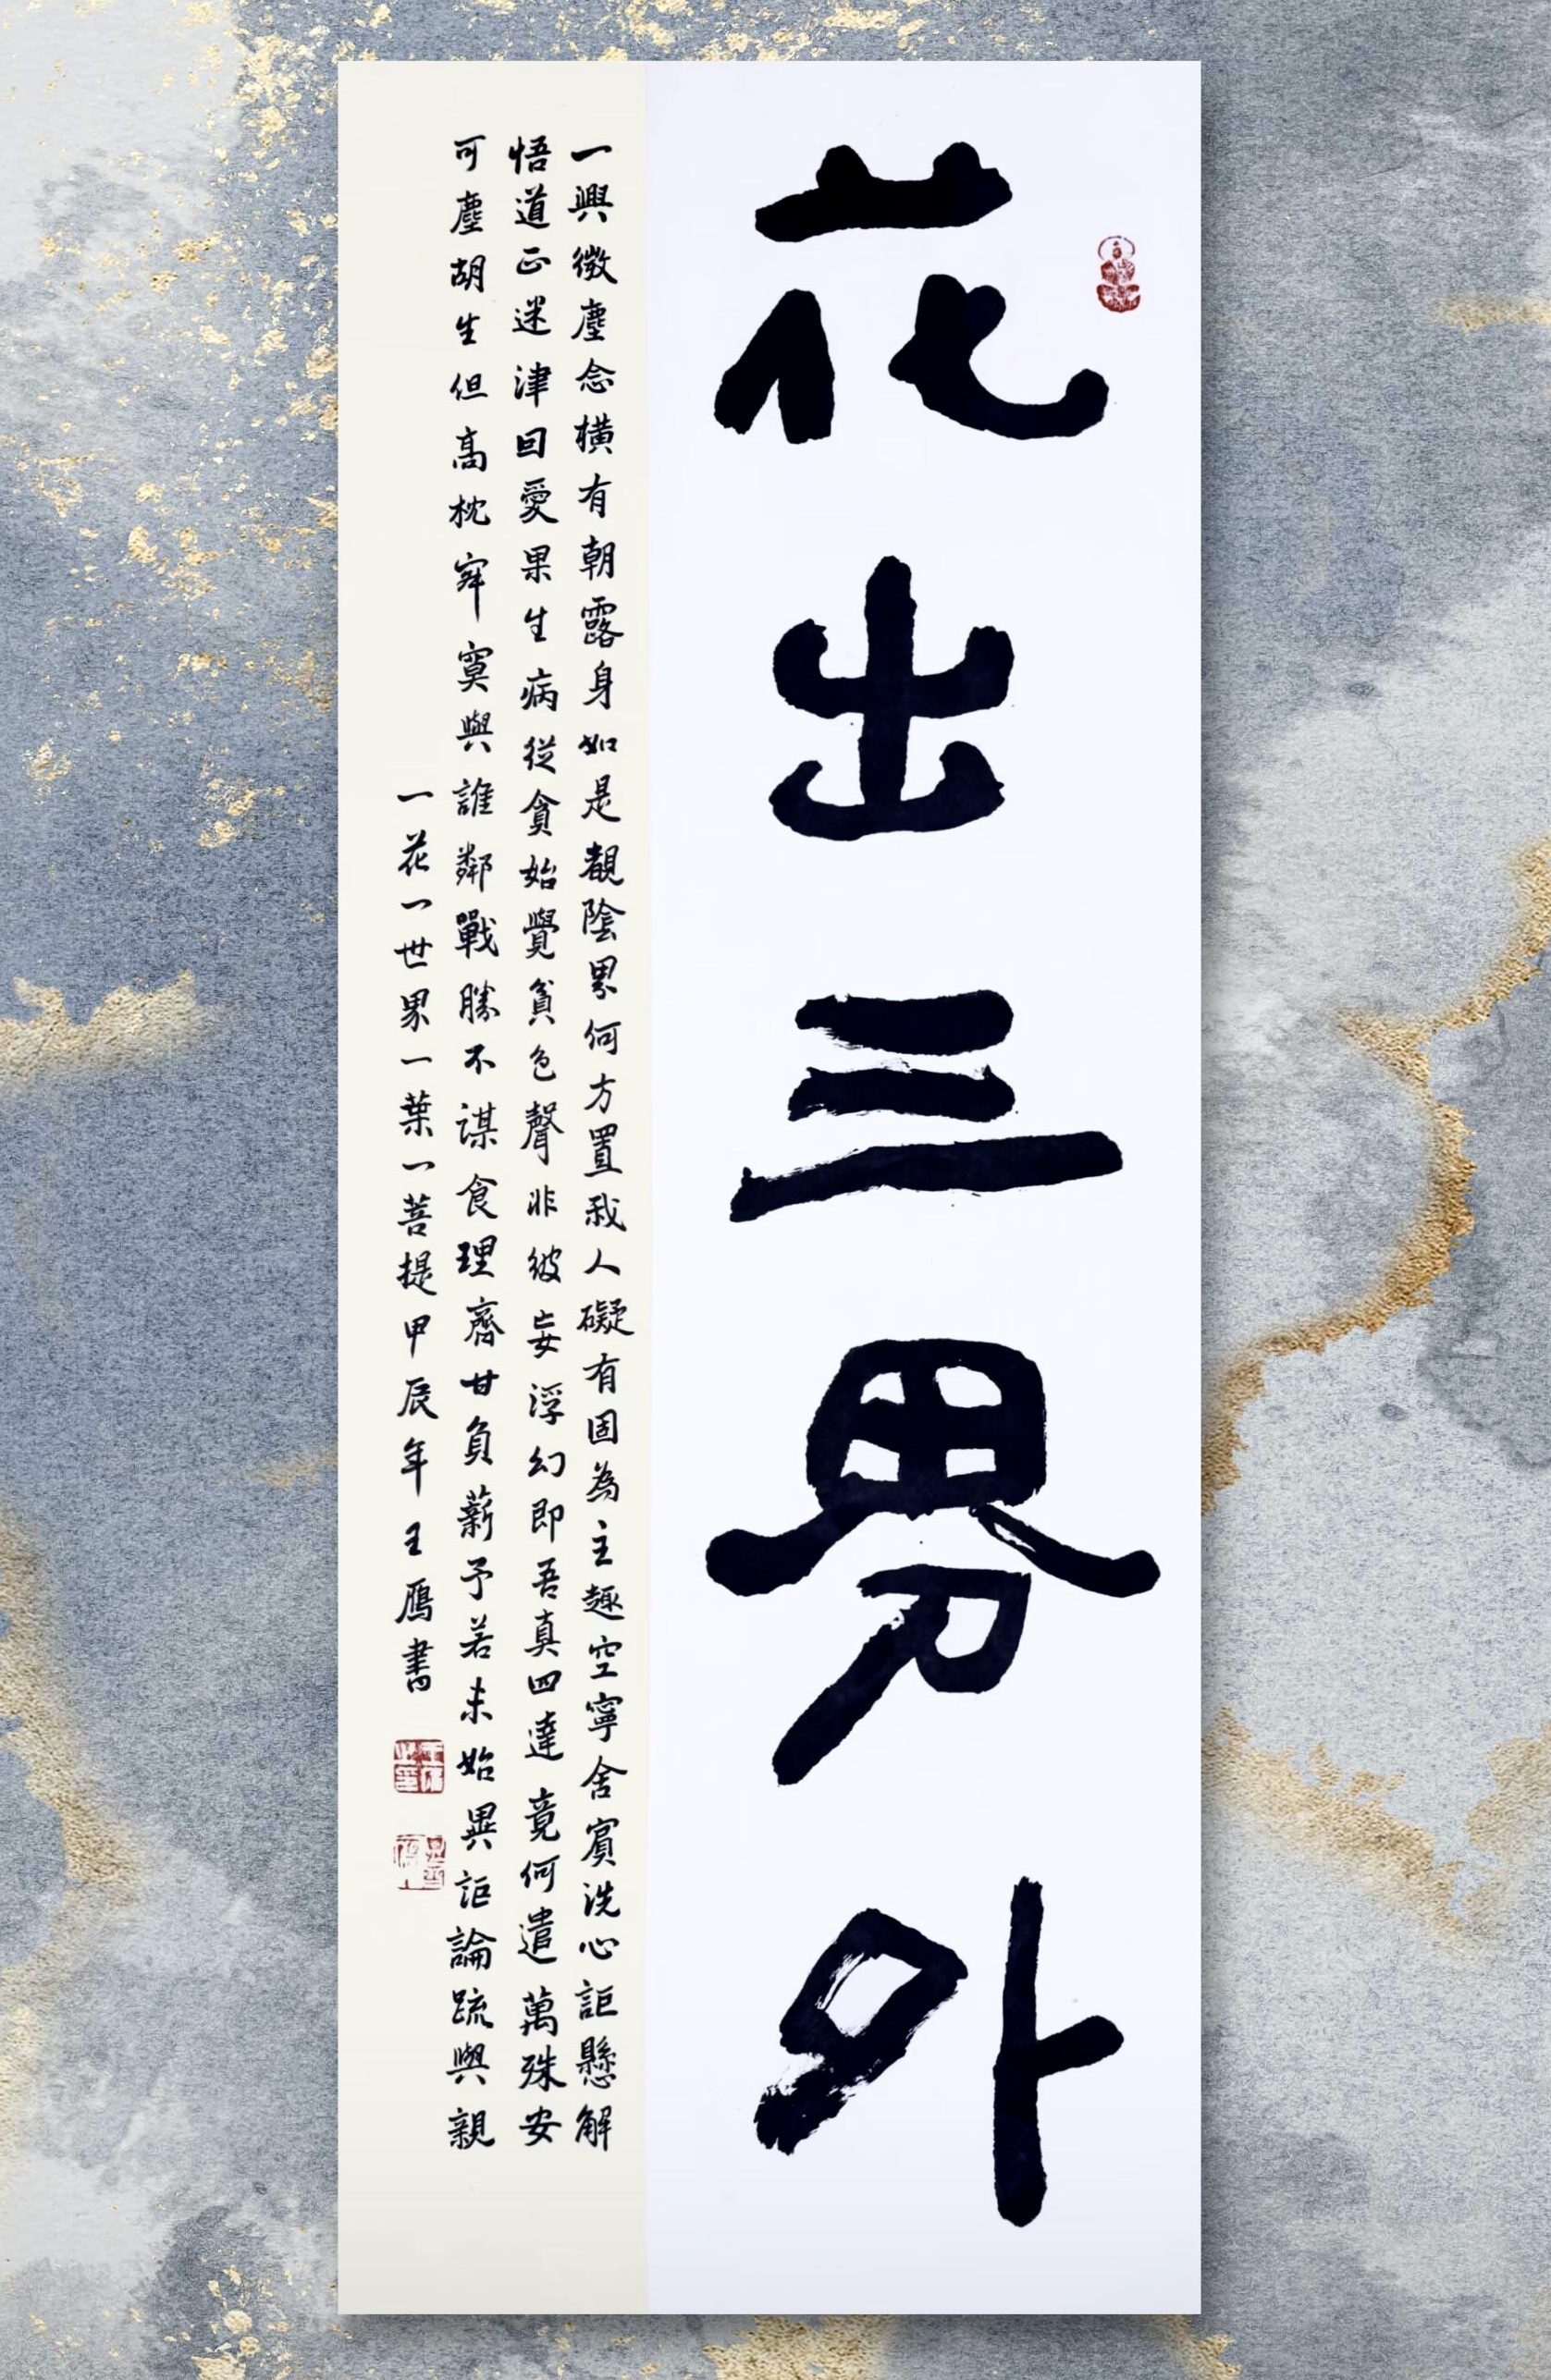 花出三界外
一興微塵念橫有朝露身如是覩陰界何方置我人礙有固為主趣空寧舍賓洗心詎懸解
悟道正迷津因愛果生病從貪始覺貧色聲非彼妄浮幻即吾真四達竟何遣萬殊安
可塵胡生但高枕寂寞與誰鄰戰勝不謀食理齊甘負薪予若未始異詎論疏與親
一花一世界一葉一菩提甲辰年王鴈書